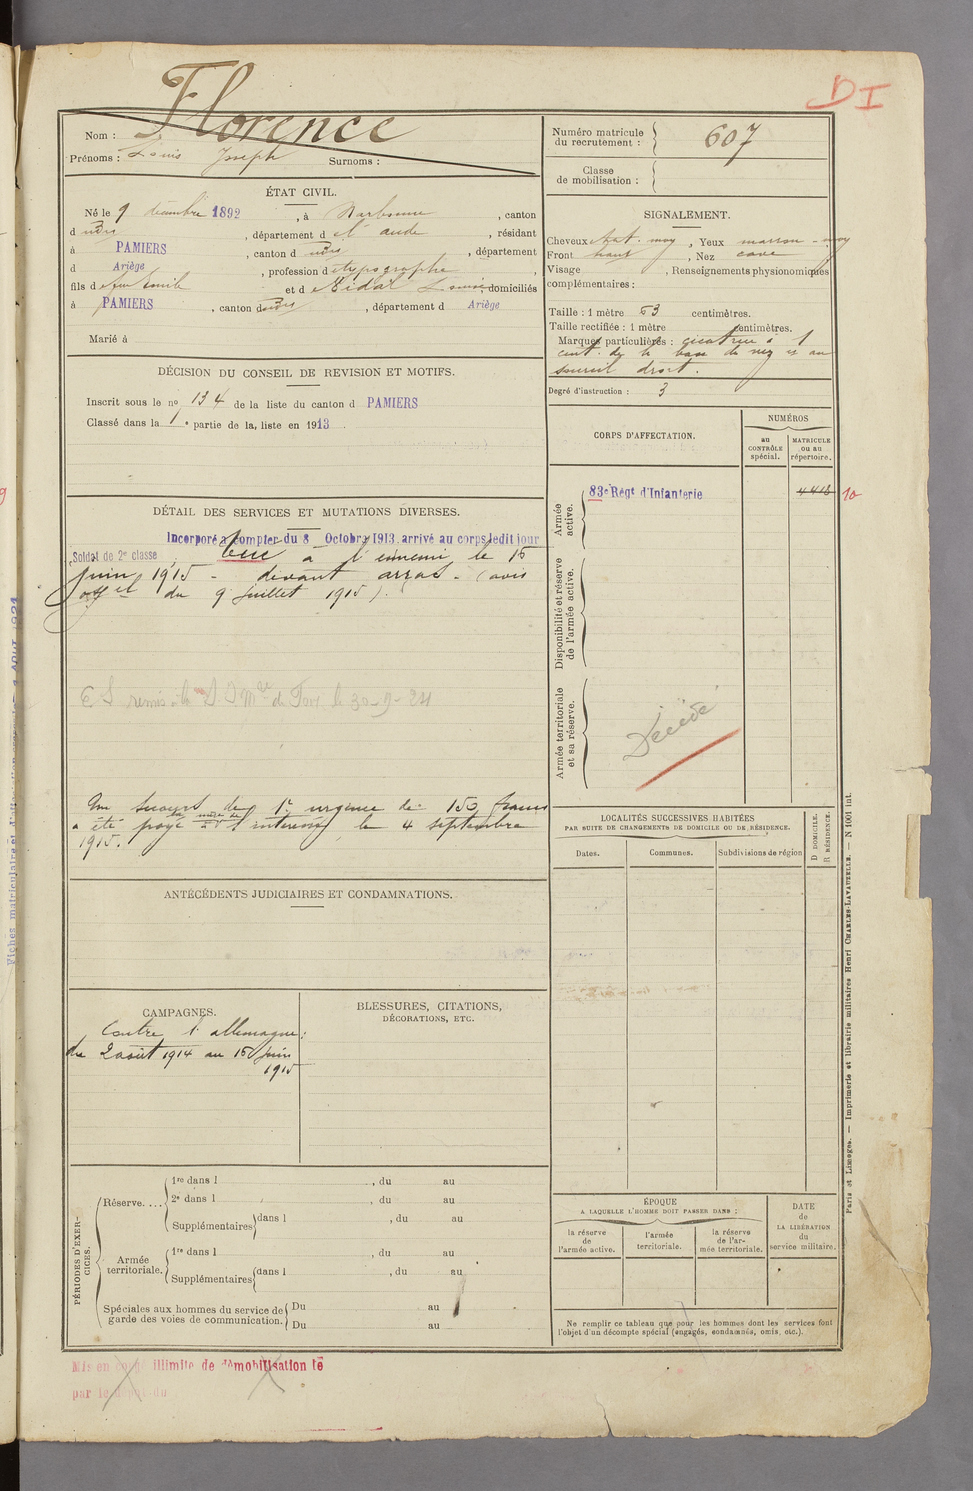 Florence
DI
Nom :
Prénoms : Louis Joseph Surnoms :
Numéro matricule
du recrutement : 607
Classe
de mobilisation :
ÉTAT CIVIL.
Né le 9 décembre 1892, à Narbonne, canton
d udis, département d e l'aude, résidant
à PAMIERS, canton d udis, département
d Ariège, profession d e typographe,
fils d e feu Emile et d e Vidal Louise, domiciliés
à PAMIERS, canton d udis, département d Ariège
Marié à
SIGNALEMENT.
Cheveux chat. moy, Yeux marron - moy
Front haut, Nez cave
Visage, Renseignements physionomiques
complémentaires :
Taille : 1 mètre 63 centimètres.
Taille rectifiée : 1 mètre centimètres.
Marques particulières : cicatrice à 1
cent. de la base du nez et au
sourcil droit.
Degré d'instruction : 3
DÉCISION DU CONSEIL DE REVISION ET MOTIFS.
Inscrit sous le no 134 de la liste du canton d PAMIERS
Classé dans la 1e partie de la liste en 1913.
CORPS D'AFFECTATION.
NUMÉROS
au
CONTRÔLE
spécial.
MATRICULE
ou au
répertoire.
Armée
active.
83e Régt d'Infanterie
4418
10
Disponibilité et réserve
de l'armée active.
Armée territoriale
et sa réserve.
Décédé
DÉTAIL DES SERVICES ET MUTATIONS DIVERSES.
Incorporé à compter du 8 Octobre 1913 arrivé au corps ledit jour
Soldat de 2e classe, tué à l'ennemi le 15
juin 1915 - devant arras - (avis
offel du 9 juillet 1915).
remis à la de le 30-9-24
Un secours de 1e urgence de 150 francs
a été payé à la mère de l'intéressé, le 4 septembre
1915.
LOCALITÉS SUCCESSIVES HABITÉES
PAR SUITE DE CHANGEMENTS DE DOMICILE OU DE RÉSIDENCE.
Dates.
Communes.
Subdivisions de région
D DOMICILE.
R RÉSIDENCE.
ANTÉCÉDENTS JUDICIAIRES ET CONDAMNATIONS.
CAMPAGNES.
Contre l'allemagne:
du 2 août 1914 au 15 juin
1915
BLESSURES, CITATIONS,
DÉCORATIONS, ETC.
PÉRIODES D'EXER-
CICES.
Réserve....
1re dans l , du au
2e dans l , du au
Supplémentaires dans l , du au
Armée
territoriale.
1re dans l , du au
Supplémentaires dans l , du au
Spéciales aux hommes du service de
garde des voies de communication.
Du au
Du au
ÉPOQUE
A LAQUELLE L'HOMME DOIT PASSER DANS :
la réserve
de
l'armée active.
l'armée
territoriale.
la réserve
de l'ar-
mée territoriale.
DATE
de
LA LIBÉRATION
du
service militaire.
Ne remplir ce tableau que pour les hommes dont les services font
l'objet d'un décompte spécial (engagés, condamnés, omis, etc.).
Mis en congé illimité de démobilisation le
par le dépôt du
Paris et Limoges. — Imprimerie et librairie militaires Henri CHARLES-LAVAUZELLE. — N 1001 int.